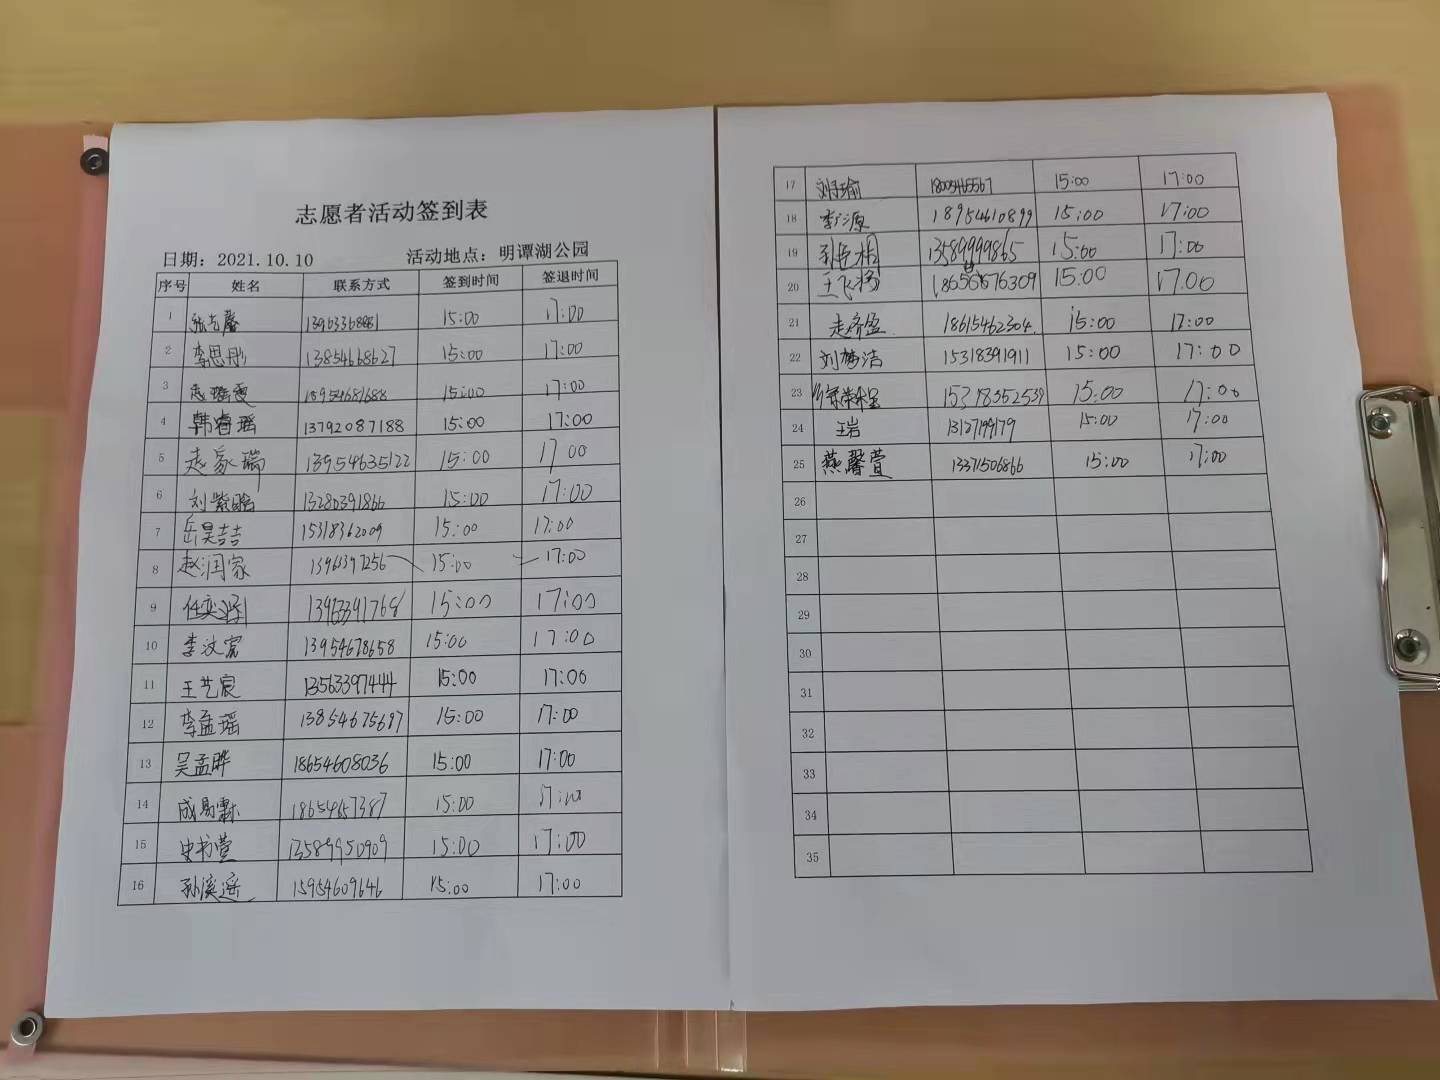 志愿者活动签到表
日期：2021.10.10 活动地点：明谭湖公园
序号 姓名 联系方式 签到时间 签退时间
1 15:00 17:00
2 李思彤 13854668627 15:00 17:00
3 15954681688 15:00 17:00
4 韩睿瑶 13792087188 15:00 17:00
5 赵家瑞 13954635122 15:00 17 00
6 刘紫晗 13280391866 15:00 17:00
7 岳昊喆 15318362009 15:00 17:00
8 赵润家 15:00 17:00
9 13963391768 15:00 17:00
10 李汶宸 13954678658 15:00 17:00
11 王艺宸 13563397444 15:00 17:00
12 李孟瑶 13854675687 15:00 17:00
13 吴孟晔 18654608036 15:00 17:00
14 成易霖 18654657387 15:00 17:00
15 史书萱 13589950909 15:00 17:00
16 孙溪遥 15954609646 15:00 17:00
17 刘子瑜 18005465567 15:00 17:00
18 李源 18954610899 15:00 17:00
19 13589999865 15:00 17:00
20 王飞扬 15:00 17.00
21 18615462304 15:00 17:00
22 刘梦洁 15318391911 15:00 17:00
23 徐荣程 15318352539 15:00 17:00
24 王岩 13127199179 15:00 17:00
25 燕馨萱 13371506866 15:00 17:00
26
27
28
29
30
31
32
33
34
35